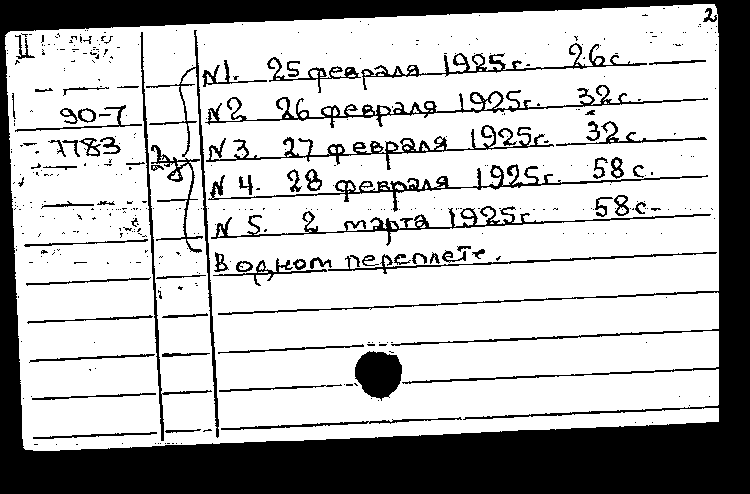 2
II
№1. 25 февраля 1925г. 26с.
90-7
№2 26 февраля 1925г. 32с.
7783
№3. 27 февраля 1925г. 32с.
2э
№4. 28 февраля 1925г. 58с.
№5. 2 марта 1925г. 58с.
В одном переплете.